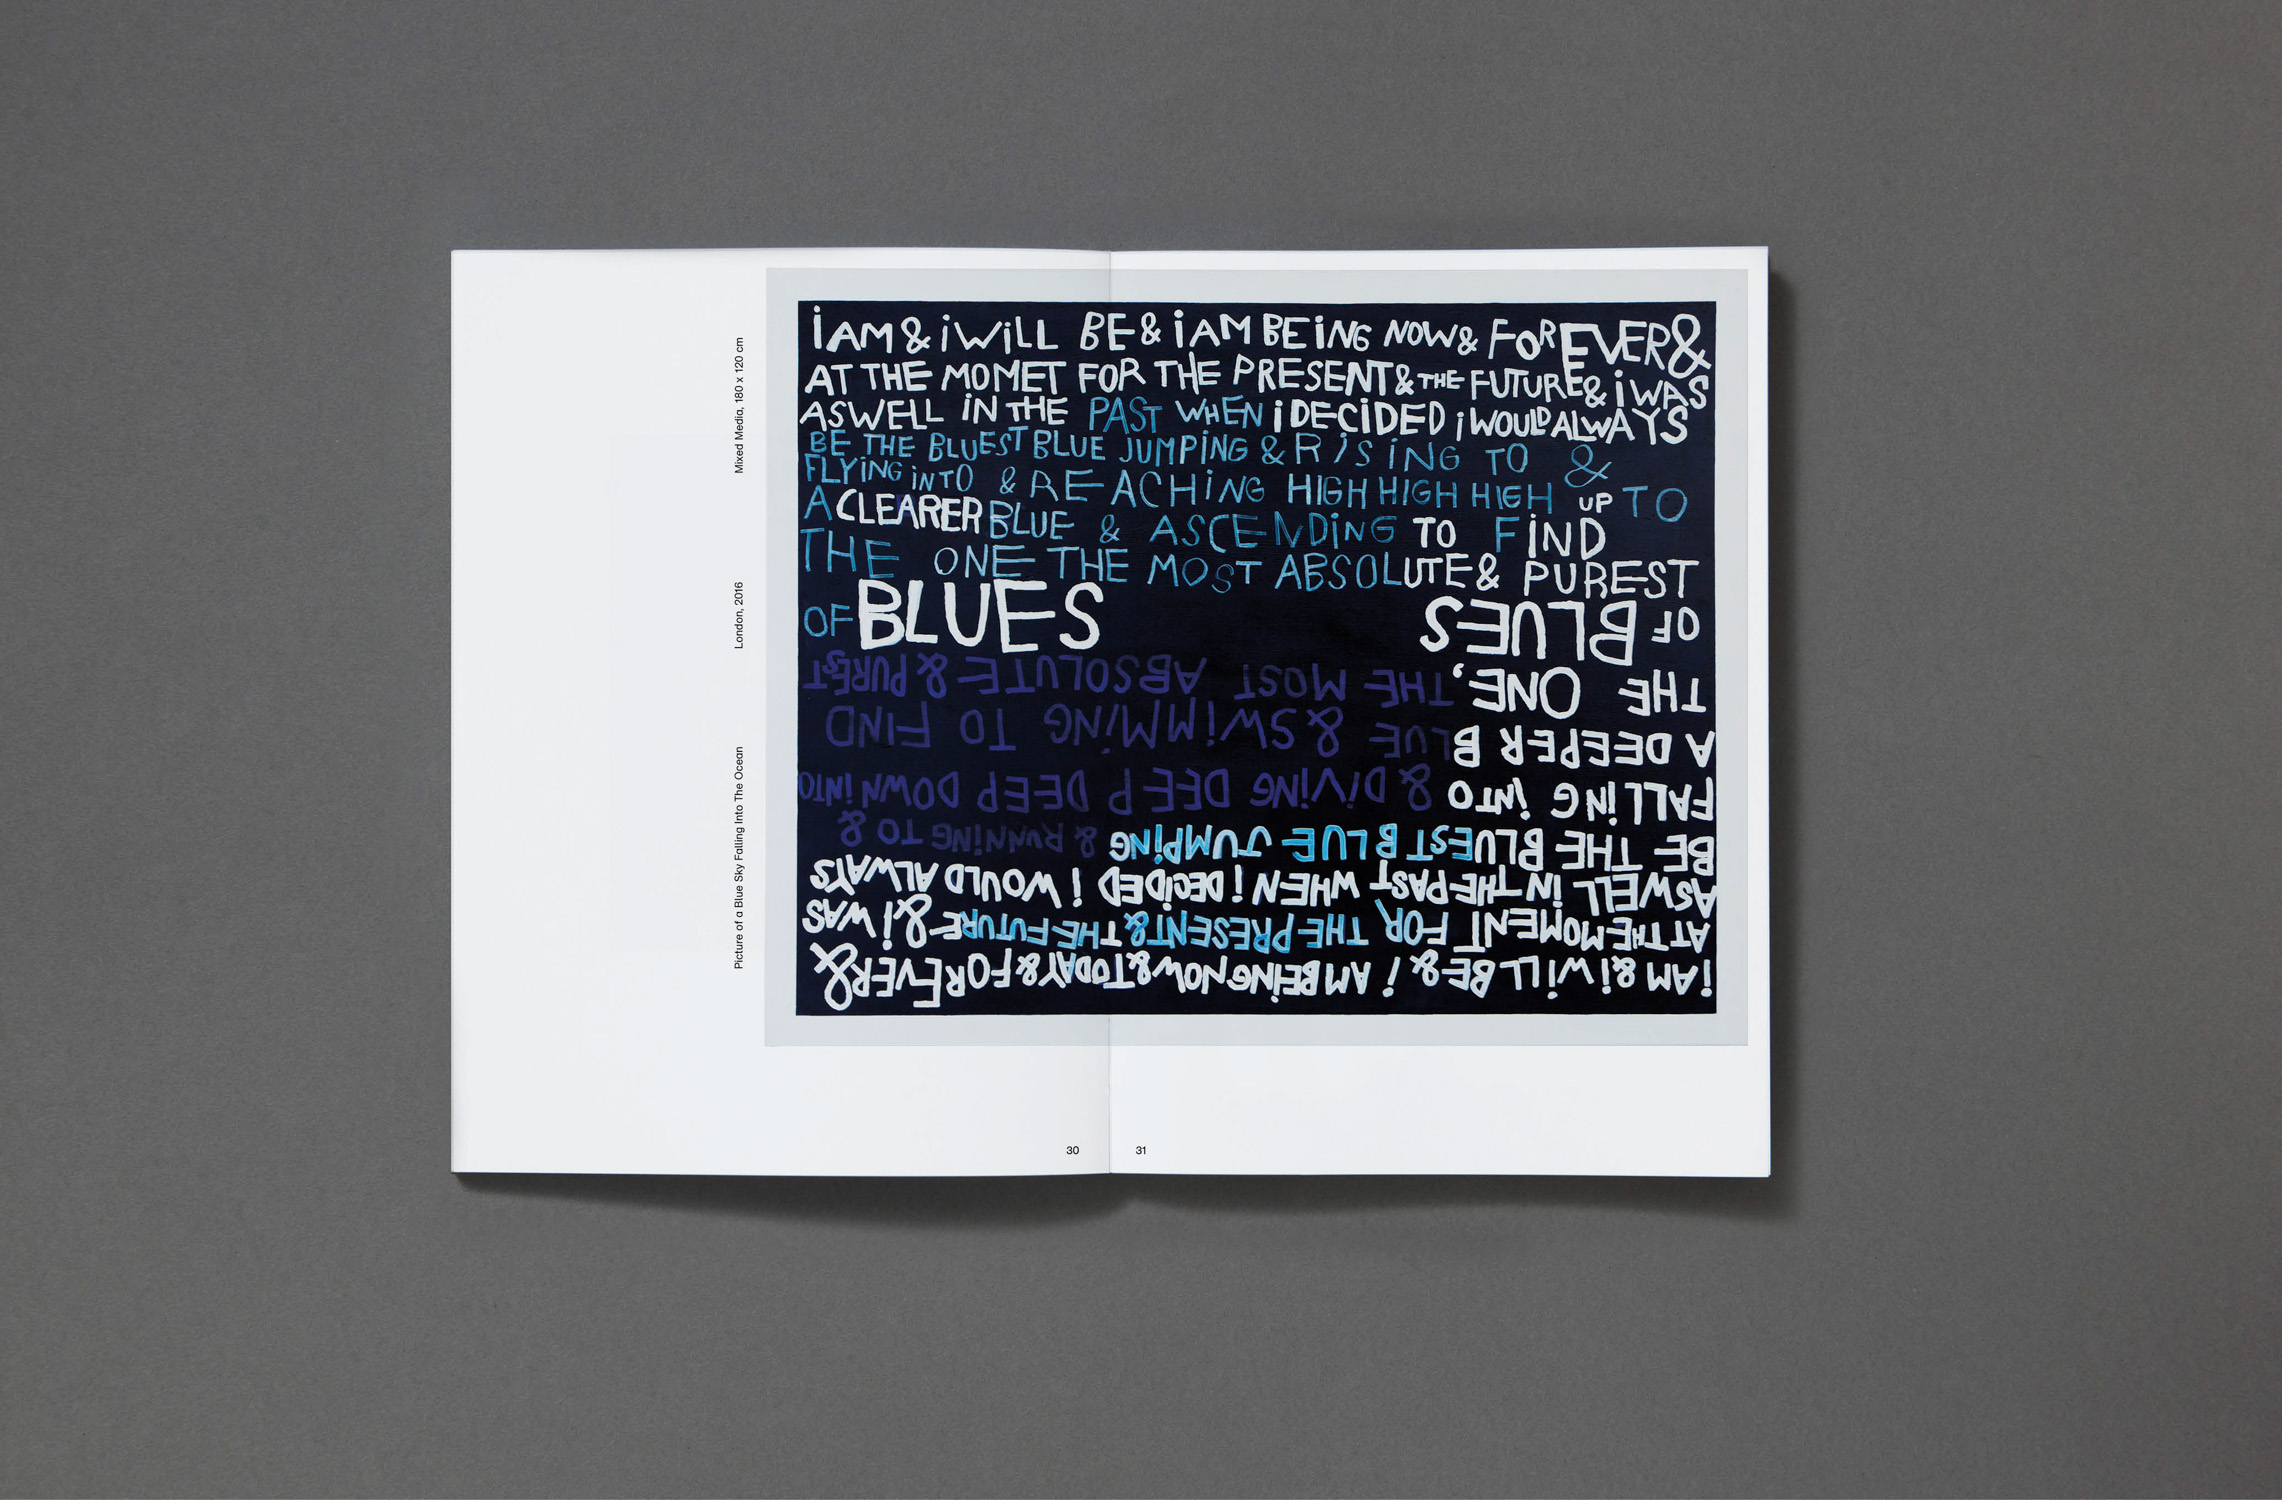 Mixed Media, 180 x 120 cm
London, 2016
Picture of a Blue Sky Falling Into The Ocean
i AM & i WiLL BE & i AM BEiNG NOW & FOREVER &
AT THE MOMET FOR THE PRESENT & THE FUTURE & i WAS
ASWELL iN THE PAST WHEN i DECiDED i WOULD ALWAYS
BE THE BLUEST BLUE JUMPiNG & RiSiNG TO &
FLYiNG iNTO & REACHiNG HIGH HIGH HIGH UP TO
A CLEARER BLUE & ASCENDiNG TO FiND
THE ONE THE MOST ABSOLUTE & PUREST
OF BLUES
i AM & i WiLL BE & i AM BEiNG NOW & TODAY & FOREVER &
AT THE MOMENT FOR THE PRESENT & THE FUTURE & i WAS
ASWELL iN THE PAST WHEN i DECiDED i WOULD ALWAYS
BE THE BLUEST BLUE JUMPiNG & RUNNiNG TO &
FALLiNG iNTO & DiViNG DEEP DEEP DOWN iNTO
A DEEPER BLUE & SWiMMiNG TO FIND
THE ONE, THE MOST ABSOLUTE & PUREST
OF BLUES
30
31